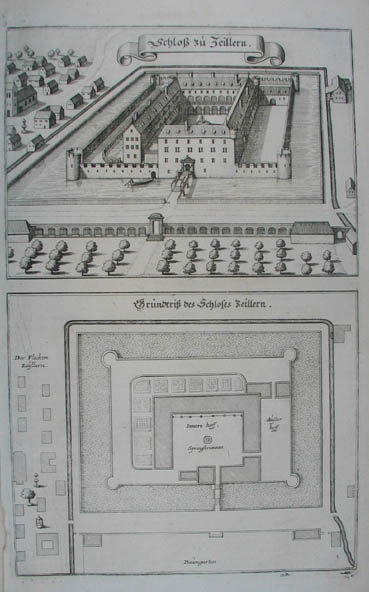 Schloß zù Zeillern.
Grùndtriß des Schloßes Zeillern.
Der Flecken
Zeyllern
Inner hoff.
Springbrunnen
Aùßer
hoff
Baumgarten